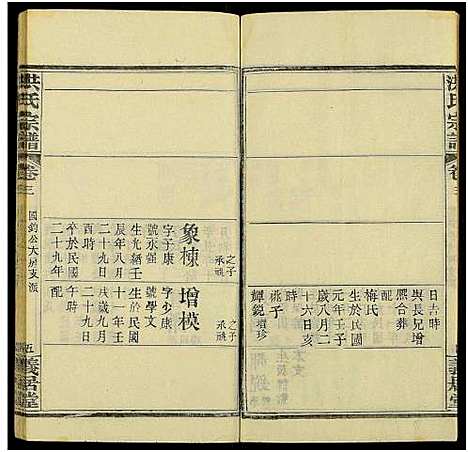 洪氏宗譜
卷三
日吉時
與長兄增
熙合葬
配
梅氏
生於民國
元年壬子
歲八月二
十六日亥
時
祧子
輝銳 積珍
象棟 之子承祧
字子康
號永強
生光緒壬
辰年八月
二十九日
酉時
卒於民國
二十九年
增模 之子承祧
字少康
號學文
生於民國
十一年壬
戌歲九月
二十九日
午時
配
洪氏宗譜
卷三
國鈞公大房支派
五
義居堂
義居堂